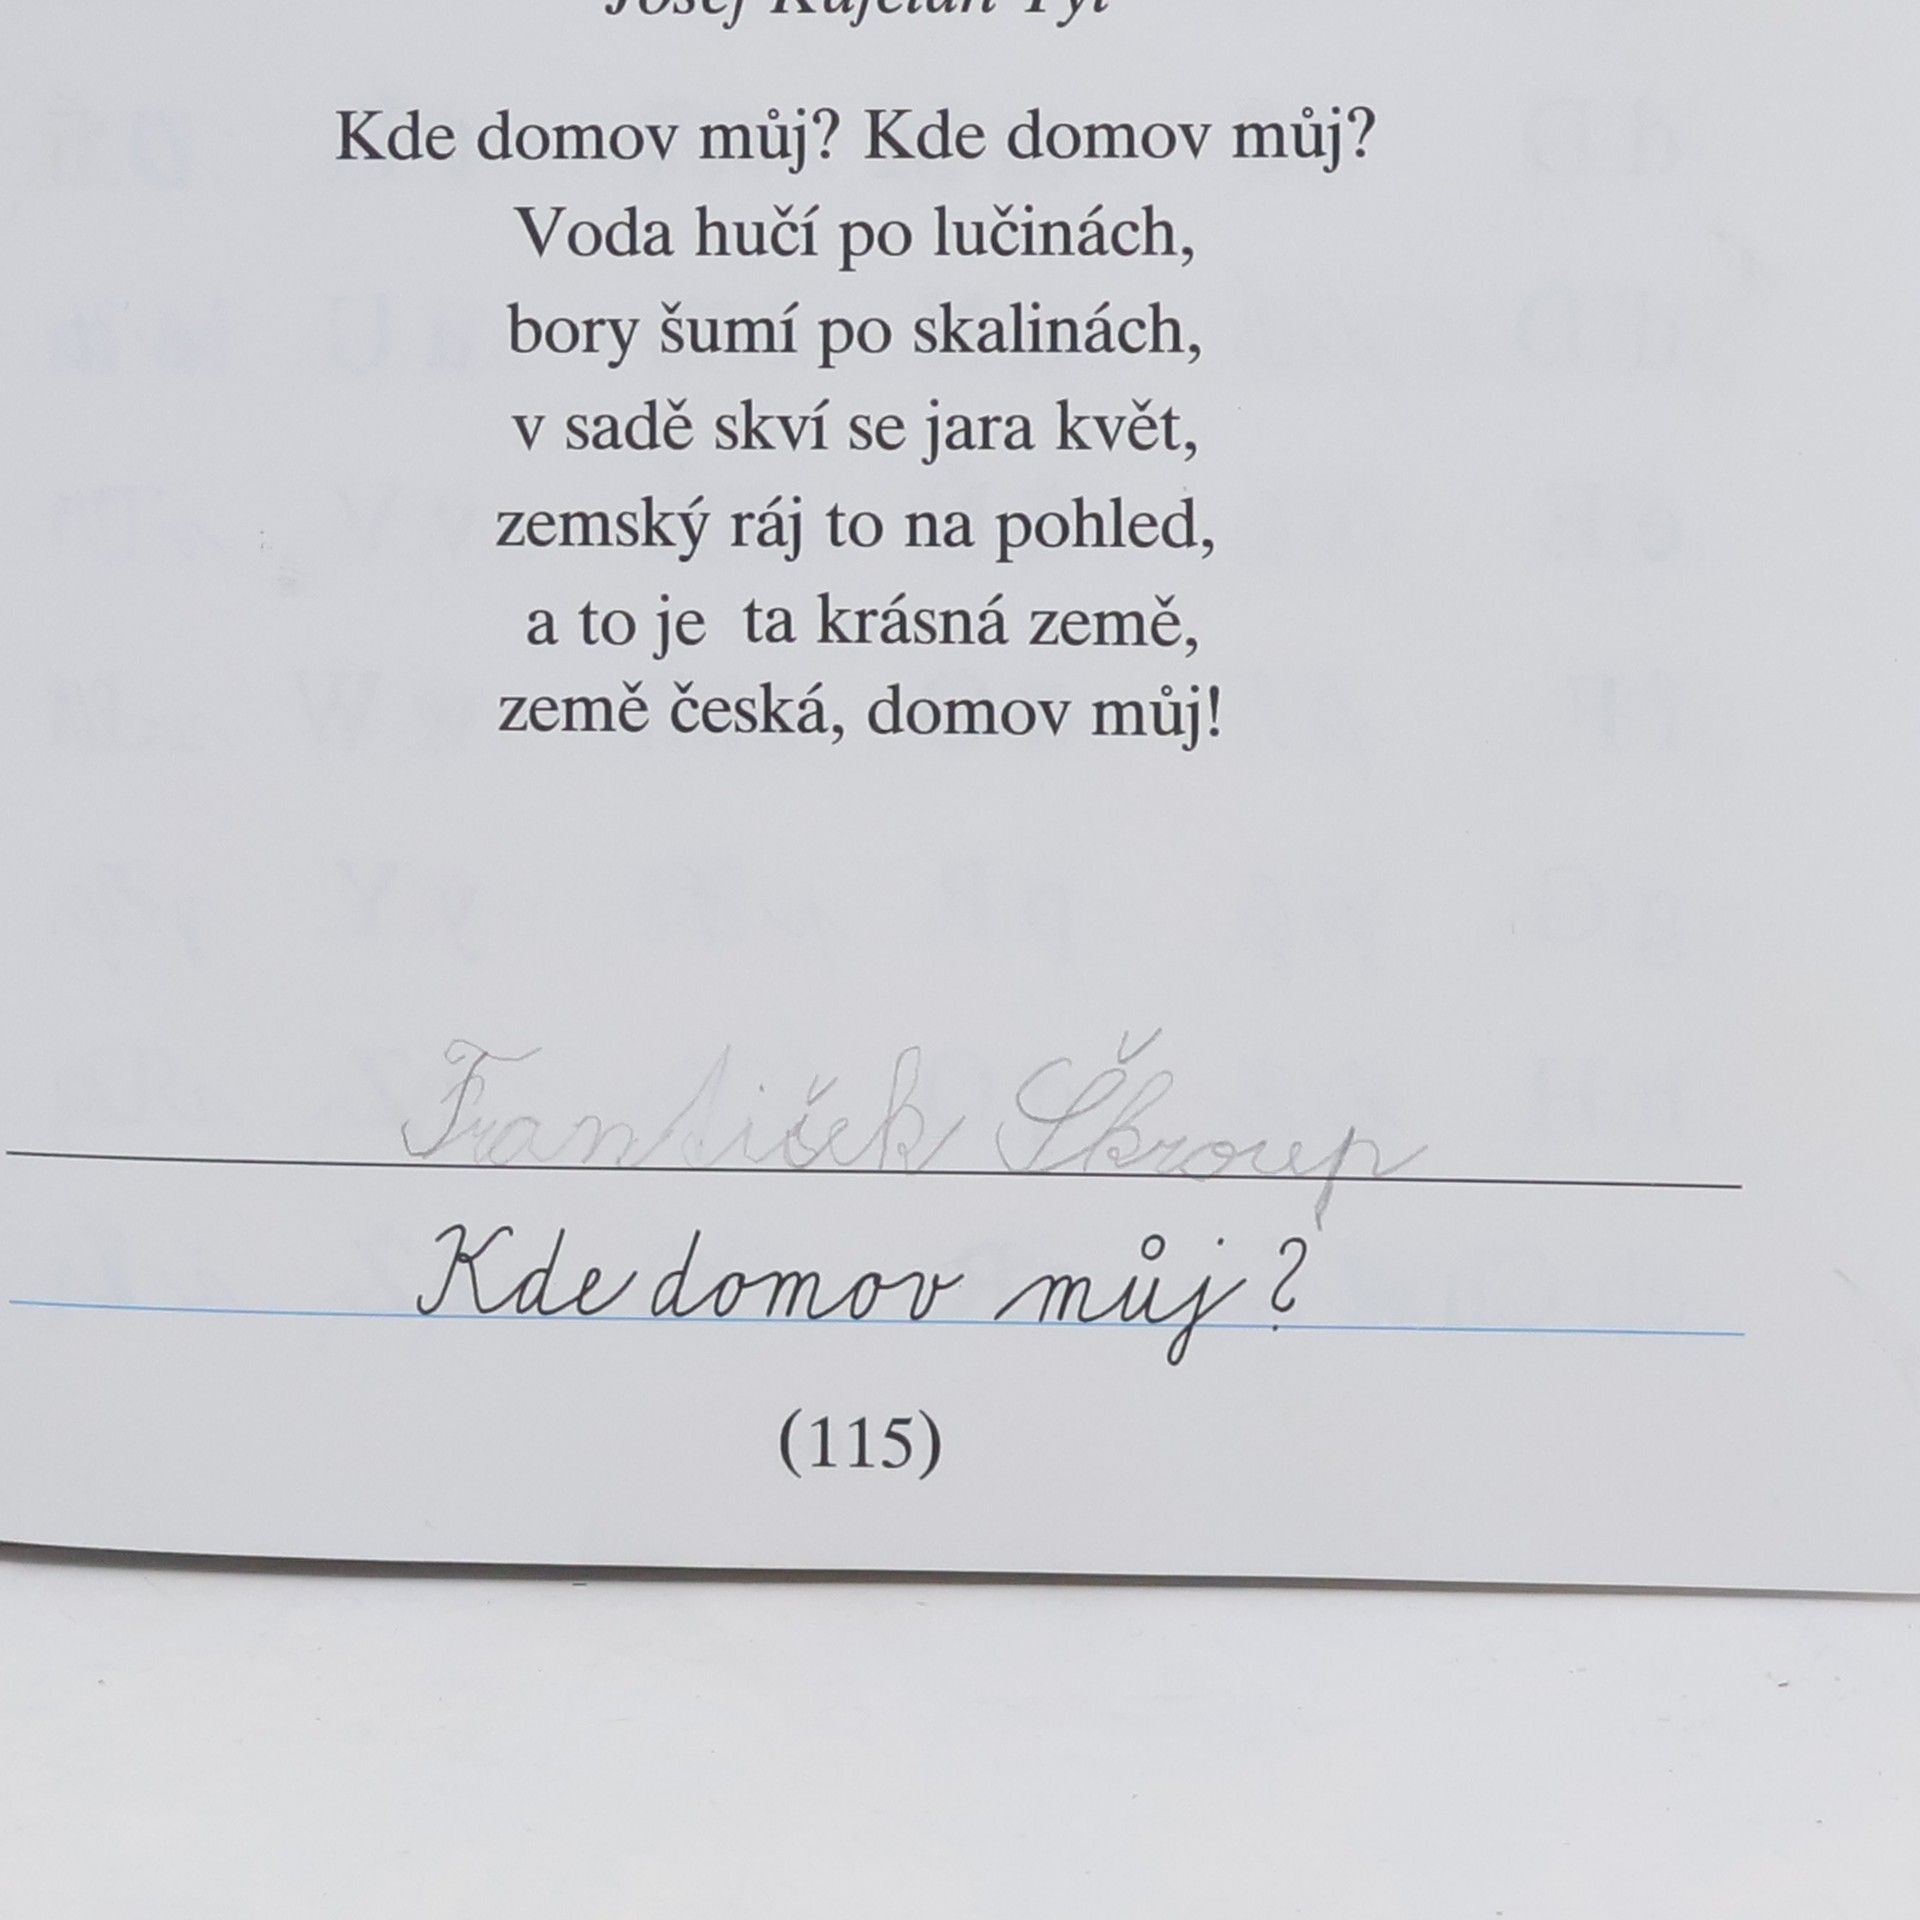 Josef Kajetán Tyl
Kde domov můj? Kde domov můj?
Voda hučí po lučinách,
bory šumí po skalinách,
v sadě skví se jara květ,
zemský ráj to na pohled,
a to je ta krásná země,
země česká, domov můj!
František Škroup
Kde domov můj?
(115)